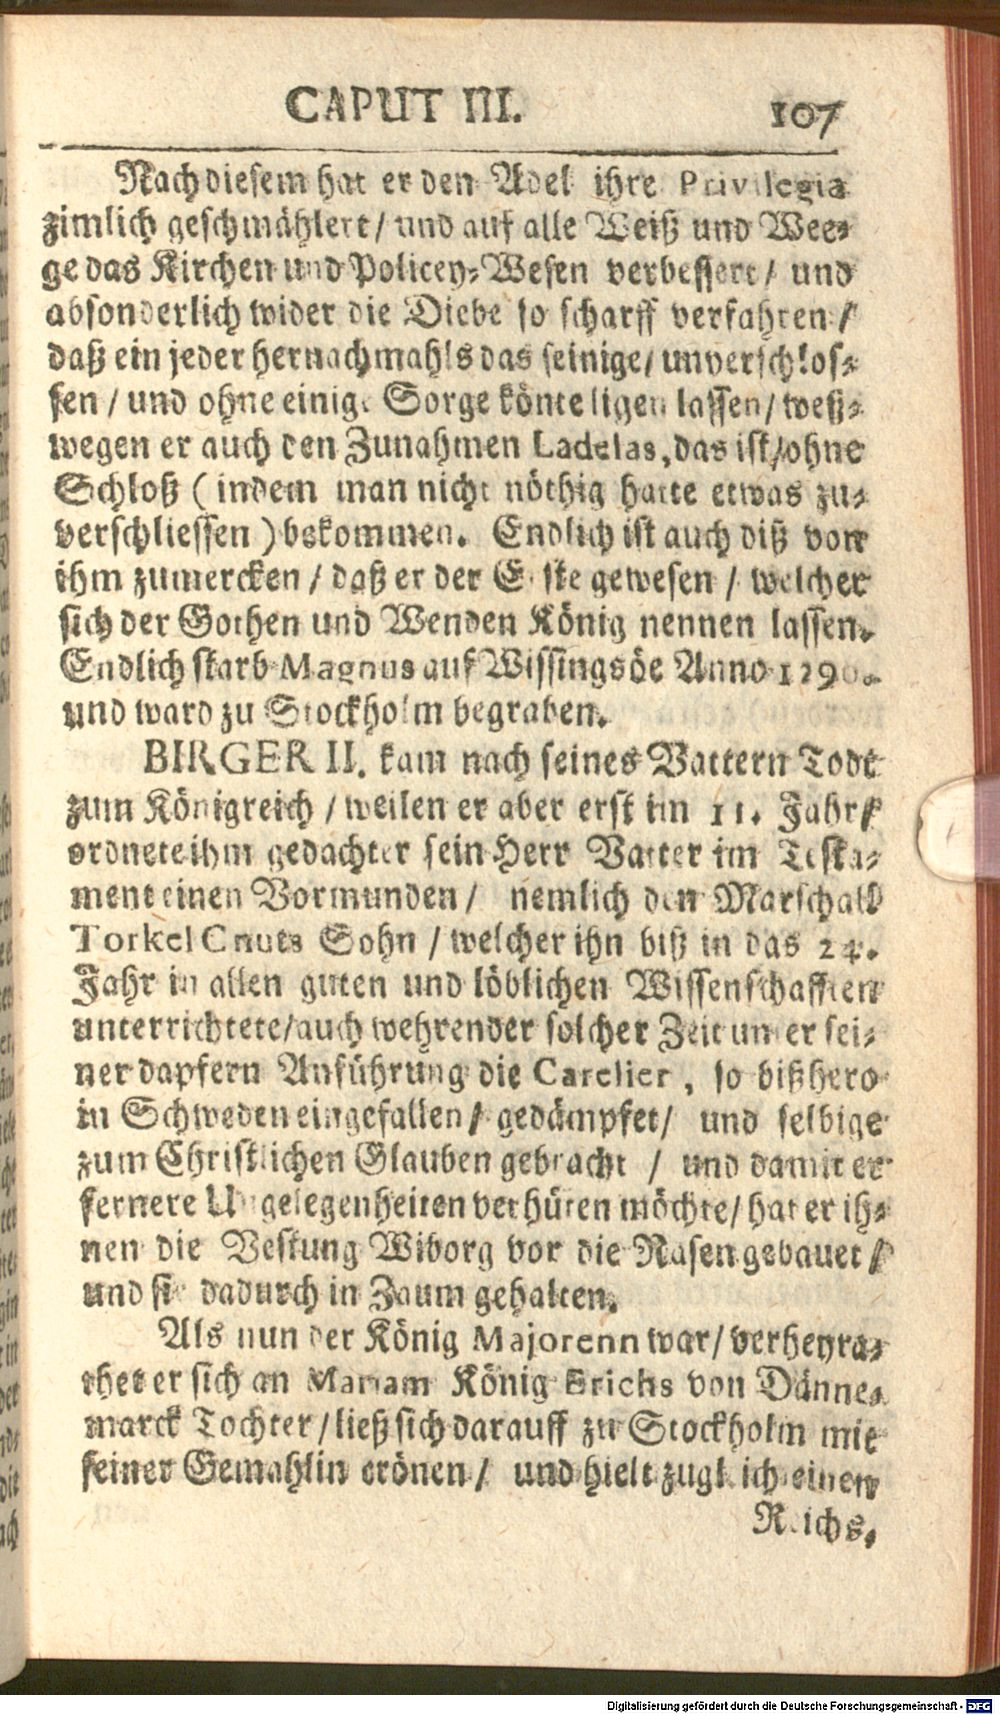 CAPUT III. 107
Nach diesem hat er den Adel ihre Privilegia
zimlich geschmählert / und auf alle Weiß und Wee-
ge das Kirchen und Policey-Wesen verbessert / und
absonderlich wider die Diebe so scharff verfahren /
daß ein jeder hernachmahls das seinige / unverschlos-
sen / und ohne einige Sorge könte ligen lassen / weß-
wegen er auch den Zunahmen Ladelas, das ist / ohne
Schloß ( indem man nicht nöthig hatte etwas zu-
verschliessen ) bekommen. Endlich ist auch diß von
ihm zumercken / daß er der Erste gewesen / welcher
sich der Gothen und Wenden König nennen lassen.
Endlich starb Magnus auf Wissingsöe Anno 1290.
und ward zu Stockholm begraben.
BIRGER II. kam nach seines Vattern Todt
zum Königreich / weilen er aber erst im 11. Jahr /
ordnete ihm gedachter sein Herr Vatter im Testa-
ment einen Vormunden / nemlich den Marschall
Torkel Cnuts Sohn / welcher ihn biß in das 24.
Jahr in allen guten und löblichen Wissenschafften
unterrichtete / auch wehrender solcher Zeit unter sei-
ner dapfern Anführung die Carelier, so bißhero
in Schweden eingefallen / gedämpfet / und selbige
zum Christlichen Glauben gebracht / und damit er
fernere Ungelegenheiten verhüten möchte / hat er ih-
nen die Vestung Wiborg vor die Nasen gebauet /
und sie dadurch in Zaum gehalten.
Als nun der König Majorenn war / verheyra-
thet er sich an Mariam König Erichs von Dänne-
marck Tochter / ließ sich darauff zu Stockholm mit
seiner Gemahlin crönen / und hielt zugleich einen
Reichs-
Digitalisierung gefördert durch die Deutsche Forschungsgemeinschaft - DFG